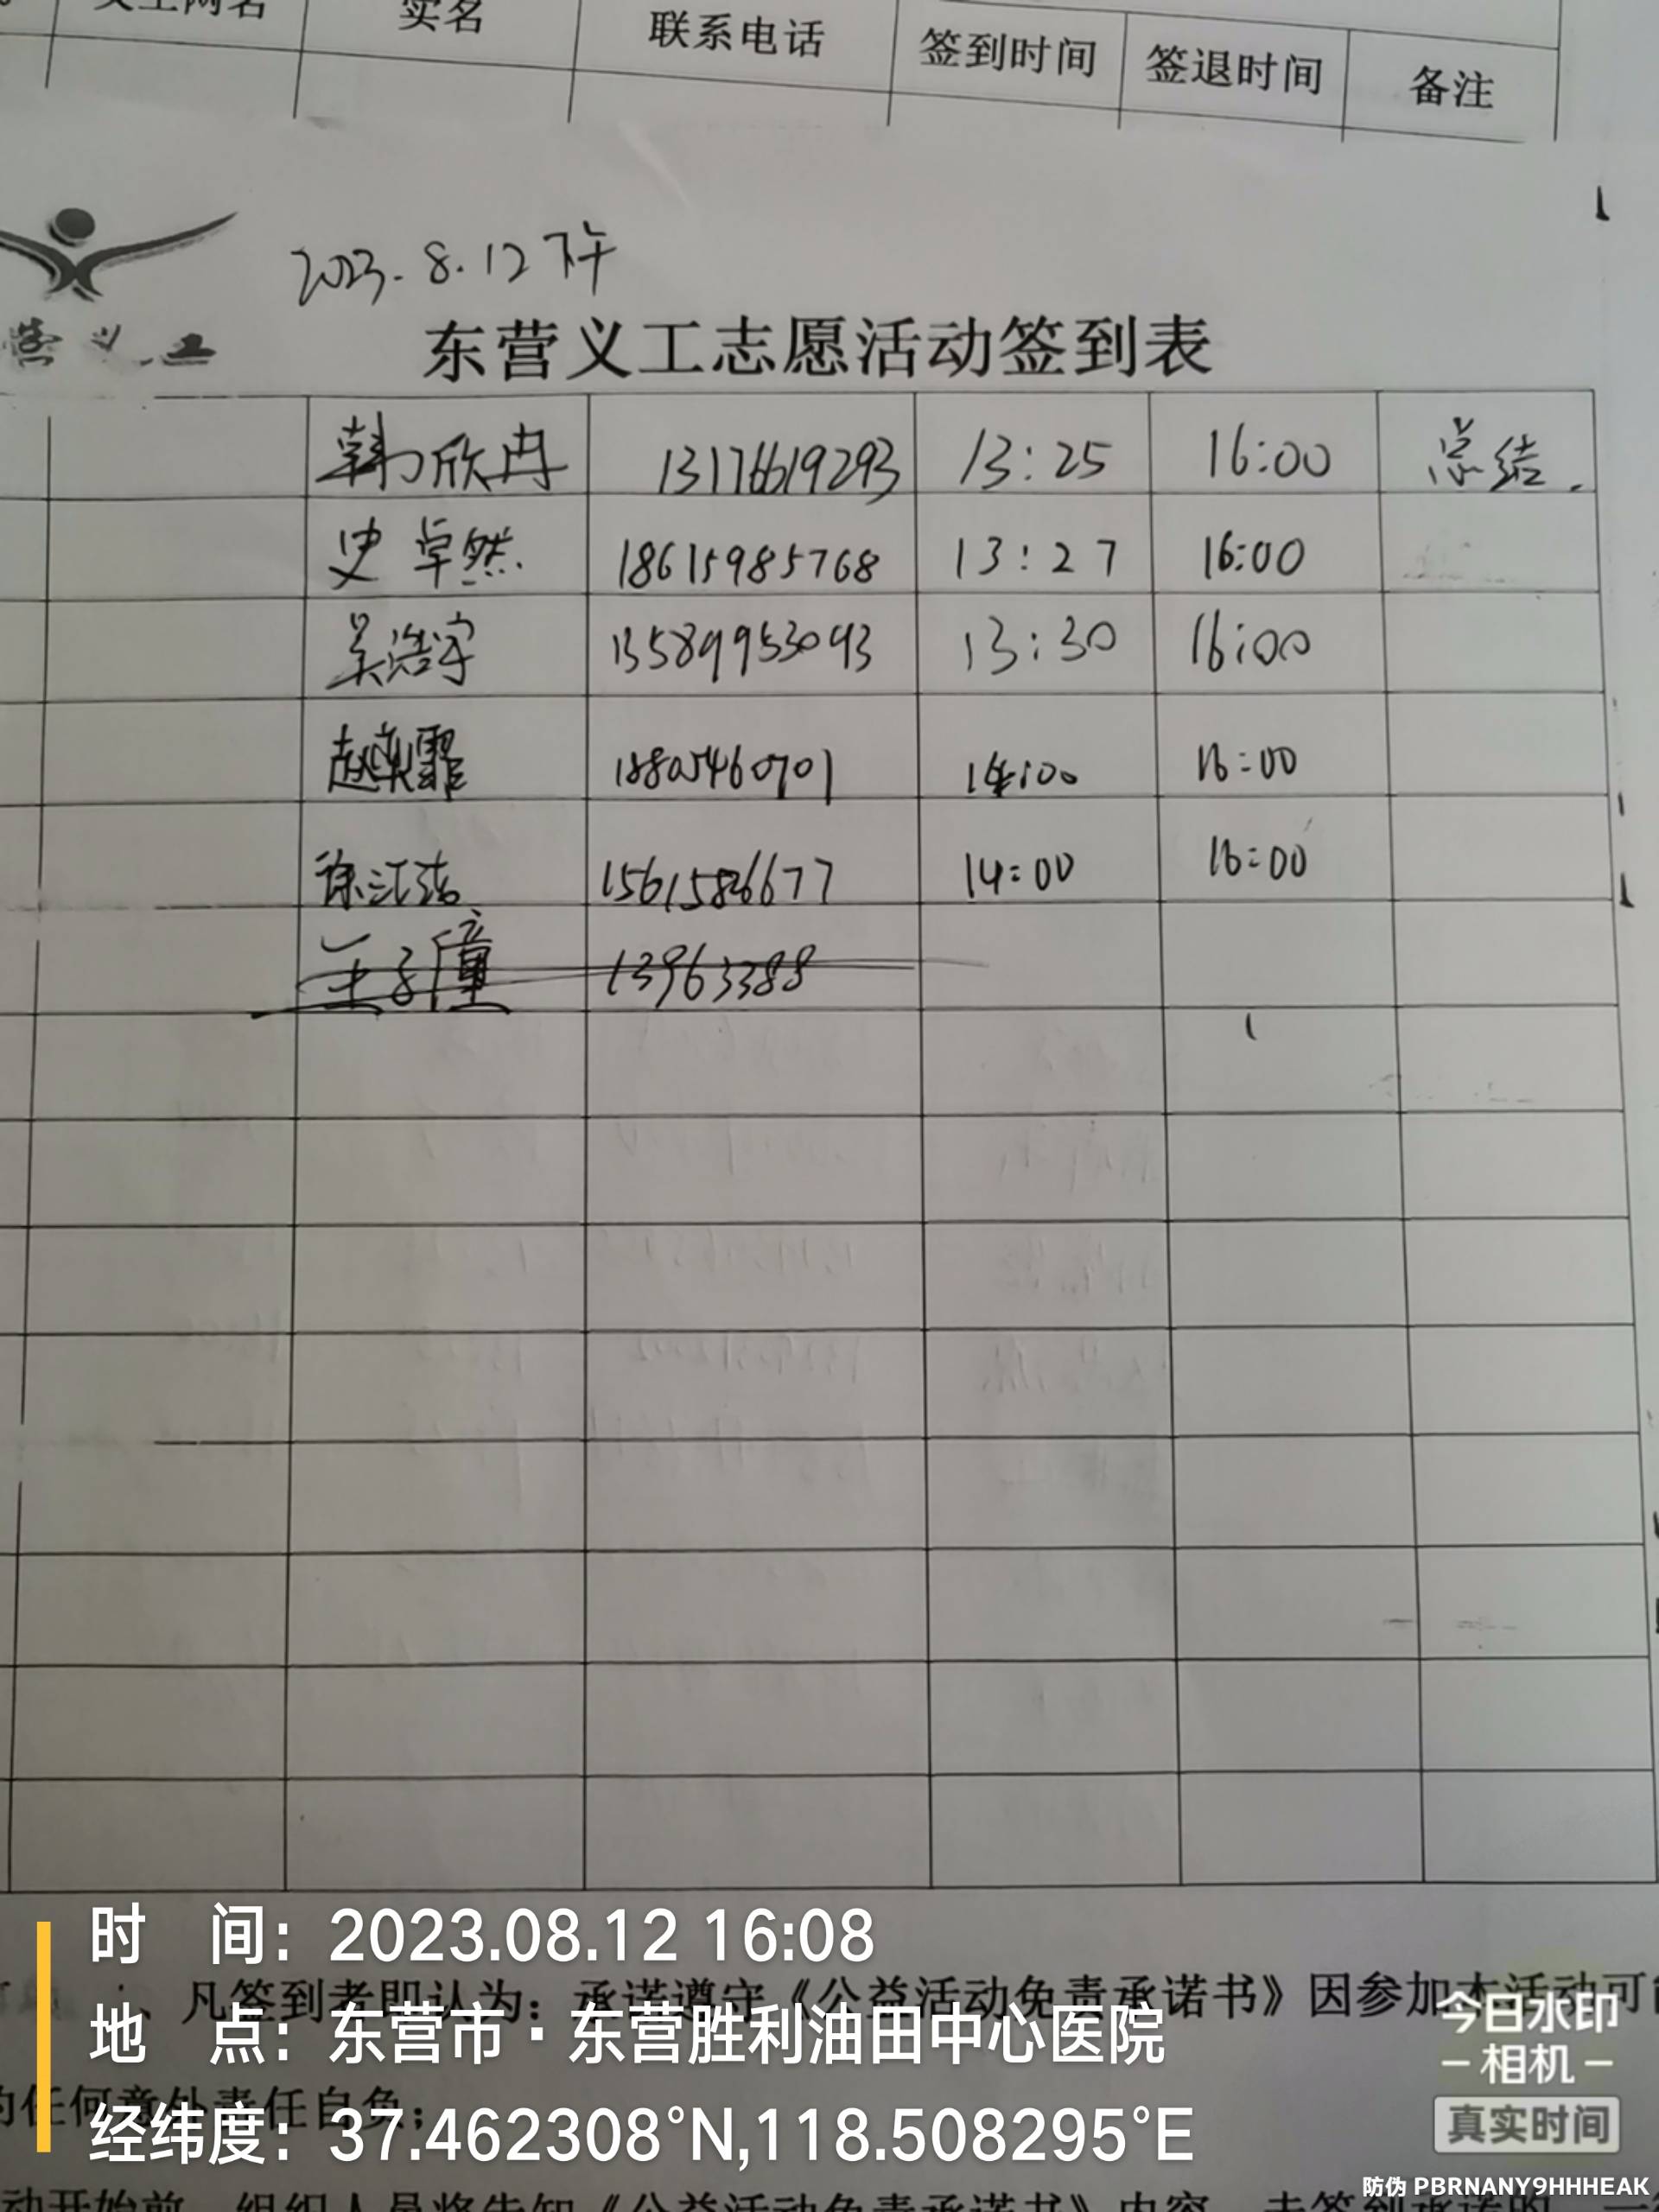 实名 联系电话 签到时间 签退时间 备注
2023.8.12下午
营义工
东营义工志愿活动签到表
韩欣冉 13176619293 13:25 16:00 总结.
史卓然 18615985768 13:27 16:00
吴浩宇 13589953093 13:30 16:00
赵 霏 18805460701 14:00 16:00
徐江浩 15615826677 14:00 16:00
王子僮 13963388
时 间: 2023.08.12 16:08
、凡签到者即认为:承诺遵守《公益活动免责承诺书》因参加本活动可能
地 点: 东营市·东营胜利油田中心医院
今日水印
相机
的任何意外责任自负;
经纬度: 37.462308°N,118.508295°E
真实时间
防伪 PBRNANY9HHHEAK
动开始前,组织人员将告知《公益活动免责承诺书》内容,未签到承诺的